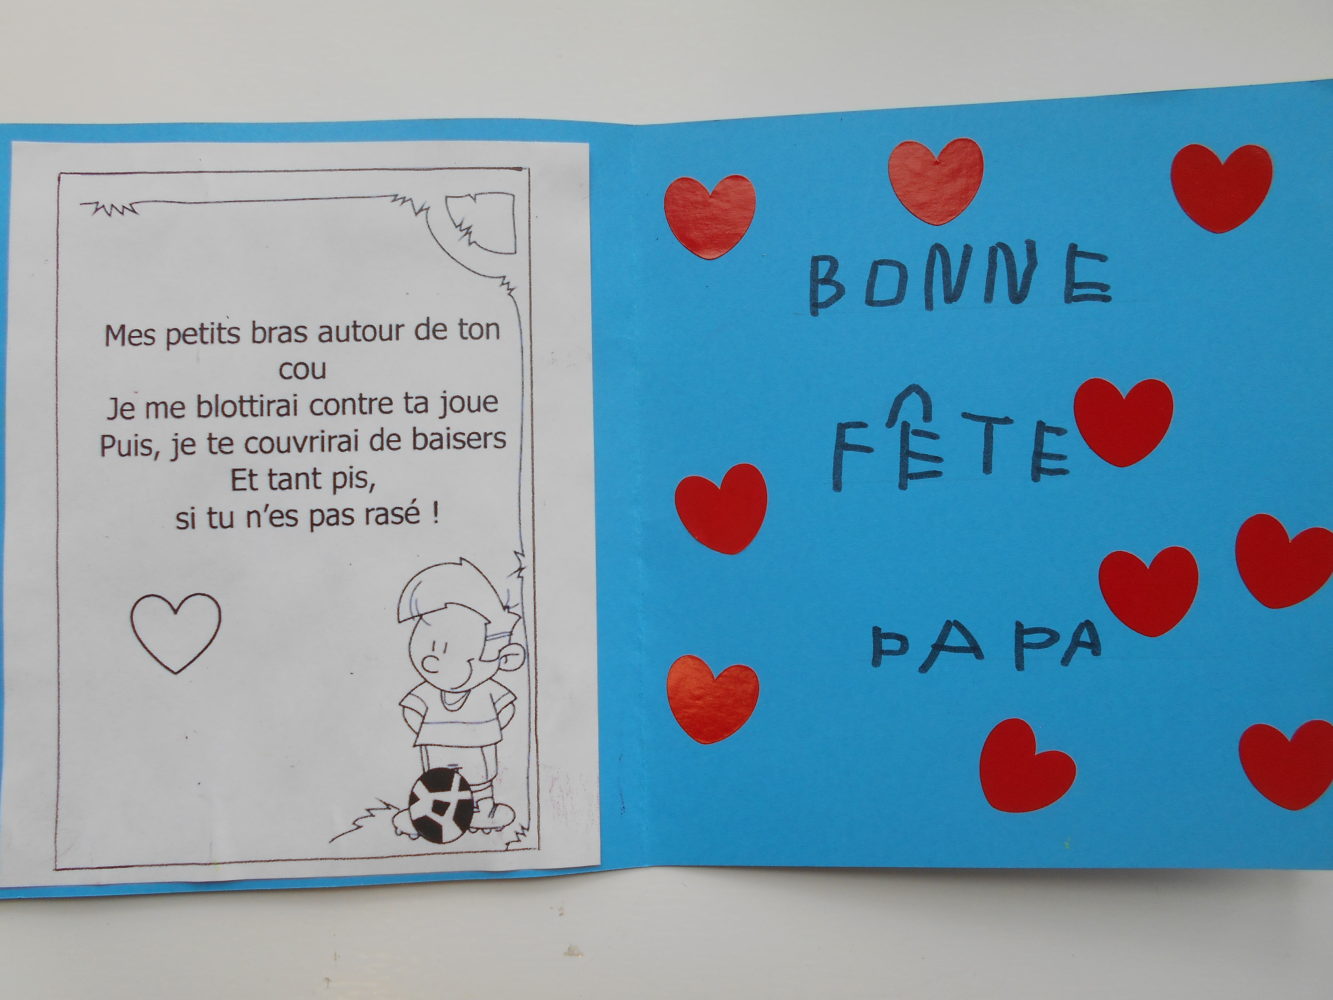 Mes petits bras autour de ton
cou
Je me blottirai contre ta joue
Puis, je te couvrirai de baisers
Et tant pis,
si tu n'es pas rasé !
BONNE
FÊTE
PAPA